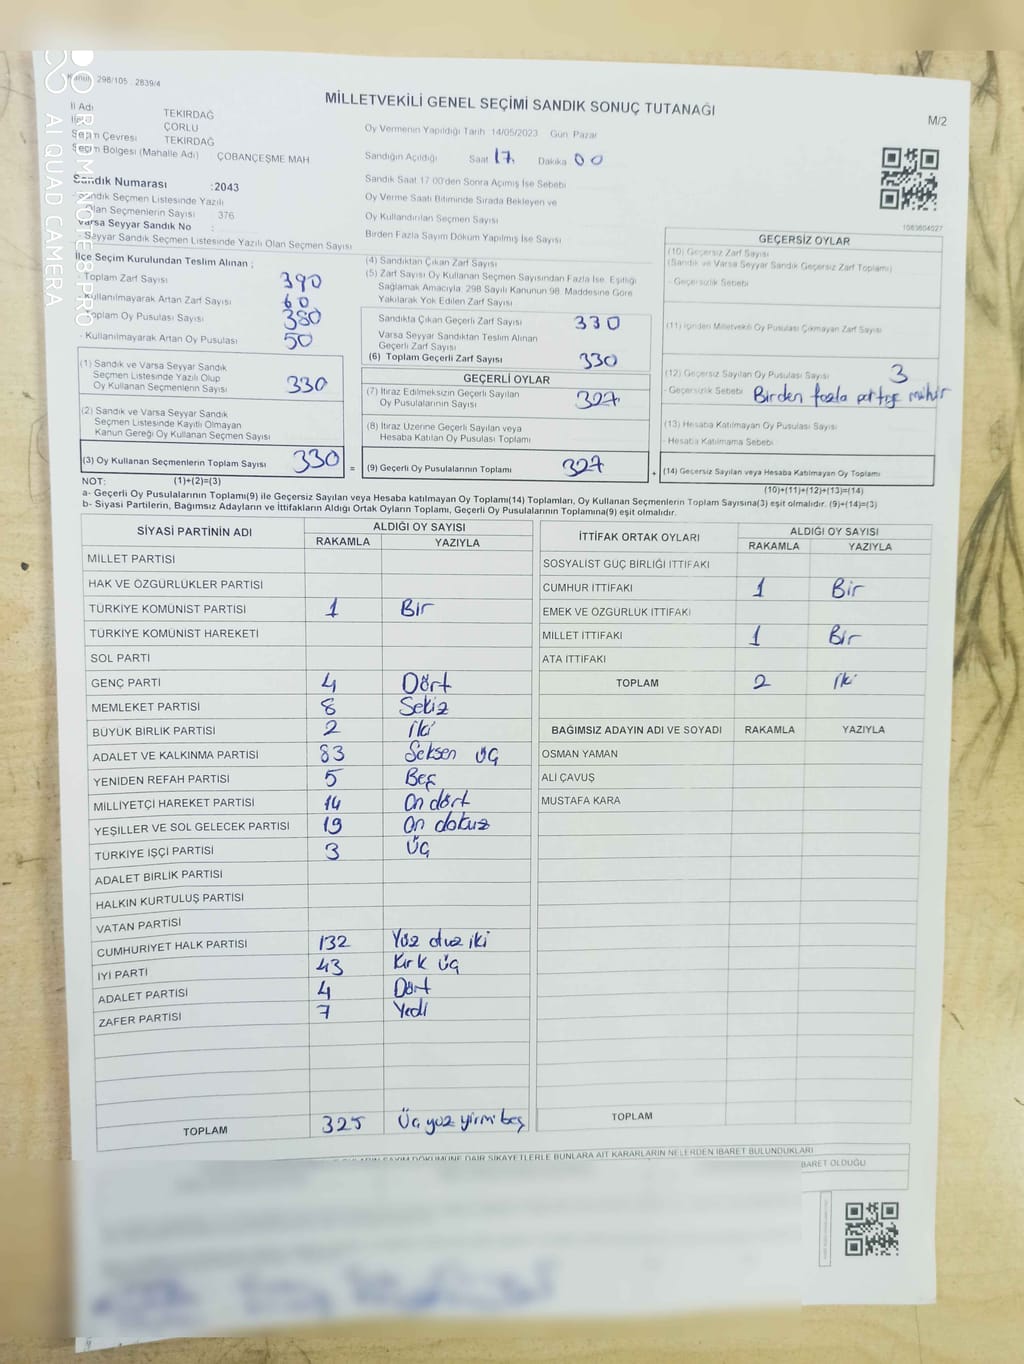 Kanun 298/105 . 2839/4
MİLLETVEKİLİ GENEL SEÇİMİ SANDIK SONUÇ TUTANAĞI
M/2
İl Adı TEKİRDAĞ
ÇORLU
Seçim Çevresi TEKİRDAĞ
Seçim Bölgesi (Mahalle Adı) ÇOBANÇEŞME MAH
Oy Vermenin Yapıldığı Tarih 14/05/2023 Gün Pazar
Sandığın Açıldığı Saat 17 Dakika 00
Sandık Saat 17 00'den Sonra Açımış İse Sebebi
Oy Verme Saati Bitiminde Sırada Bekleyen ve
Oy Kullandırılan Seçmen Sayısı
Birden Fazla Sayım Döküm Yapılmış İse Sayısı
Sandık Numarası :2043
Sandık Seçmen Listesinde Yazılı
Olan Seçmenlerin Sayısı 376
Varsa Seyyar Sandık No :
Seyyar Sandık Seçmen Listesinde Yazılı Olan Seçmen Sayısı
1083604027
İlçe Seçim Kurulundan Teslim Alınan ;
- Toplam Zarf Sayısı 390
- Kullanılmayarak Artan Zarf Sayısı 60
Toplam Oy Pusulası Sayısı 380
- Kullanılmayarak Artan Oy Pusulası 50
(1) Sandık ve Varsa Seyyar Sandık
Seçmen Listesinde Yazılı Olup
Oy Kullanan Seçmenlerin Sayısı 330
(2) Sandık ve Varsa Seyyar Sandık
Seçmen Listesinde Kayıtlı Olmayan
Kanun Gereği Oy Kullanan Seçmen Sayısı
(3) Oy Kullanan Seçmenlerin Toplam Sayısı 330
(4) Sandıktan Çıkan Zarf Sayısı
(5) Zarf Sayısı Oy Kullanan Seçmen Sayısından Fazla İse, Eşitliği
Sağlamak Amacıyla; 298 Sayılı Kanunun 98. Maddesine Göre
Yakılarak Yok Edilen Zarf Sayısı
Sandıkta Çıkan Geçerli Zarf Sayısı 330
Varsa Seyyar Sandıktan Teslim Alınan
Geçerli Zarf Sayısı
(6) Toplam Geçerli Zarf Sayısı 330
GEÇERLİ OYLAR
(7) İtiraz Edilmeksizin Geçerli Sayılan
Oy Pusulalarının Sayısı 327
(8) İtiraz Üzerine Geçerli Sayılan veya
Hesaba Katılan Oy Pusulası Toplamı
= (9) Geçerli Oy Pusulalarının Toplamı 327 +
GEÇERSİZ OYLAR
(10) Geçersiz Zarf Sayısı
(Sandık ve Varsa Seyyar Sandık Geçersiz Zarf Toplamı)
- Geçersizlik Sebebi
(11) İçinden Milletvekili Oy Pusulası Çıkmayan Zarf Sayısı
(12) Geçersiz Sayılan Oy Pusulası Sayısı 3
- Geçersizlik Sebebi Birden fazla partiye mühür
(13) Hesaba Katılmayan Oy Pusulası Sayısı
- Hesaba Katılmama Sebebi
(14) Geçersiz Sayılan veya Hesaba Katılmayan Oy Toplamı
NOT: (1)+(2)=(3) (10)+(11)+(12)+(13)=(14)
a- Geçerli Oy Pusulalarının Toplamı(9) ile Geçersiz Sayılan veya Hesaba katılmayan Oy Toplamı(14) Toplamları, Oy Kullanan Seçmenlerin Toplam Sayısına(3) eşit olmalıdır. (9)+(14)=(3)
b- Siyasi Partilerin, Bağımsız Adayların ve İttifakların Aldığı Ortak Oyların Toplamı, Geçerli Oy Pusulalarının Toplamına(9) eşit olmalıdır.
SİYASİ PARTİNİN ADI ALDIĞI OY SAYISI
RAKAMLA YAZIYLA
MİLLET PARTİSİ
HAK VE ÖZGÜRLÜKLER PARTİSİ
TÜRKİYE KOMÜNİST PARTİSİ 1 Bir
TÜRKİYE KOMÜNİST HAREKETİ
SOL PARTİ
GENÇ PARTİ 4 Dört
MEMLEKET PARTİSİ 8 Sekiz
BÜYÜK BİRLİK PARTİSİ 2 İki
ADALET VE KALKINMA PARTİSİ 83 Seksen üç
YENİDEN REFAH PARTİSİ 5 Beş
MİLLİYETÇİ HAREKET PARTİSİ 14 On dört
YEŞİLLER VE SOL GELECEK PARTİSİ 19 On dokuz
TÜRKİYE İŞÇİ PARTİSİ 3 Üç
ADALET BİRLİK PARTİSİ
HALKIN KURTULUŞ PARTİSİ
VATAN PARTİSİ
CUMHURİYET HALK PARTİSİ 132 Yüz otuz iki
İYİ PARTİ 43 Kırk üç
ADALET PARTİSİ 4 Dört
ZAFER PARTİSİ 7 Yedi
TOPLAM 325 Üç yüz yirmi beş
İTTİFAK ORTAK OYLARI ALDIĞI OY SAYISI
RAKAMLA YAZIYLA
SOSYALİST GÜÇ BİRLİĞİ İTTİFAKI
CUMHUR İTTİFAKI 1 Bir
EMEK VE ÖZGÜRLÜK İTTİFAKI
MİLLET İTTİFAKI 1 Bir
ATA İTTİFAKI
TOPLAM 2 İki
BAĞIMSIZ ADAYIN ADI VE SOYADI RAKAMLA YAZIYLA
OSMAN YAMAN
ALİ ÇAVUŞ
MUSTAFA KARA
TOPLAM
SAYIM DÖKÜMÜNE DAİR ŞİKAYETLERLE BUNLARA AİT KARARLARIN NELERDEN İBARET BULUNDUKLARI
BARET OLDUĞU
REDMI NOTE 8 PRO
AI QUAD CAMERA